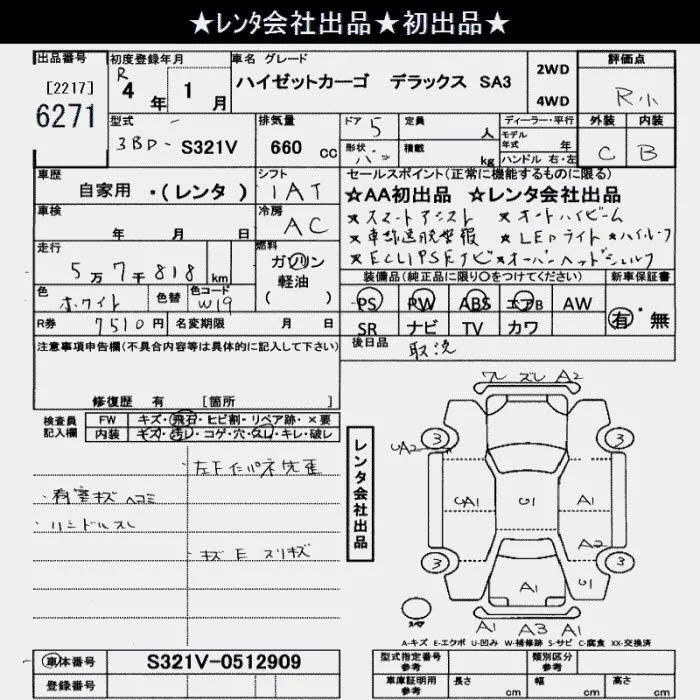 ★レンタ会社出品★初出品★
出品番号
[2217]
6271
初度登録年月
R 4 年 1 月
車名 グレード
ハイゼットカーゴ デラックス SA3
2WD
4WD
評価点
R
外装 内装
C B
型式
3BD- S321V
排気量
660 cc
ドア 5
定員 人
形状 バン
積載 kg
ディーラー・平行
モデル年式 年
ハンドル 右・左
車歴
自家用 ・(レンタ)
シフト
IAT
車検
年 月 日
冷房
AC
走行
5万7千818 km
燃料
ガソリン
軽油
( )
色
ホワイト
色替
色コード
W19
R券 7510円
名変期限 月 日
セールスポイント(正常に機能するものに限る)
★AA初出品 ☆レンタ会社出品
★スマートアシスト ★オートハイビーム
★車線逸脱警報 ★LEDライト
★ECLIPSEナビ ★オーバーヘッドシェルフ
装備品(純正品に限り○をつけてください)
新車保証書
PS PW ABS エアB AW
SR ナビ TV カワ
有・無
後日品
取説
注意事項申告欄(不具合内容等は具体的に記入して下さい)
修復歴 有 [箇所
検査員記入欄
FW キズ・飛石・ヒビ割・リペア跡・×要
内装 キズ・汚レ・コゲ・穴・欠レ・キレ・破レ
荷室キズヘコミ
キズ E スリキズ
レンタ会社出品
ワレ ズレ A2
3 3
UA2
UA1 U1 A1
A2
3 3
A1 U1
A1 A3 A1
A-キズ E-エクボ U-凹み W-補修跡 S-サビ C-腐食 XX-交換済
車体番号 S321V-0512909
登録番号
型式指定番号 参考
類別区分 参考
車庫証明用 参考
長さ cm
幅 cm
高さ cm